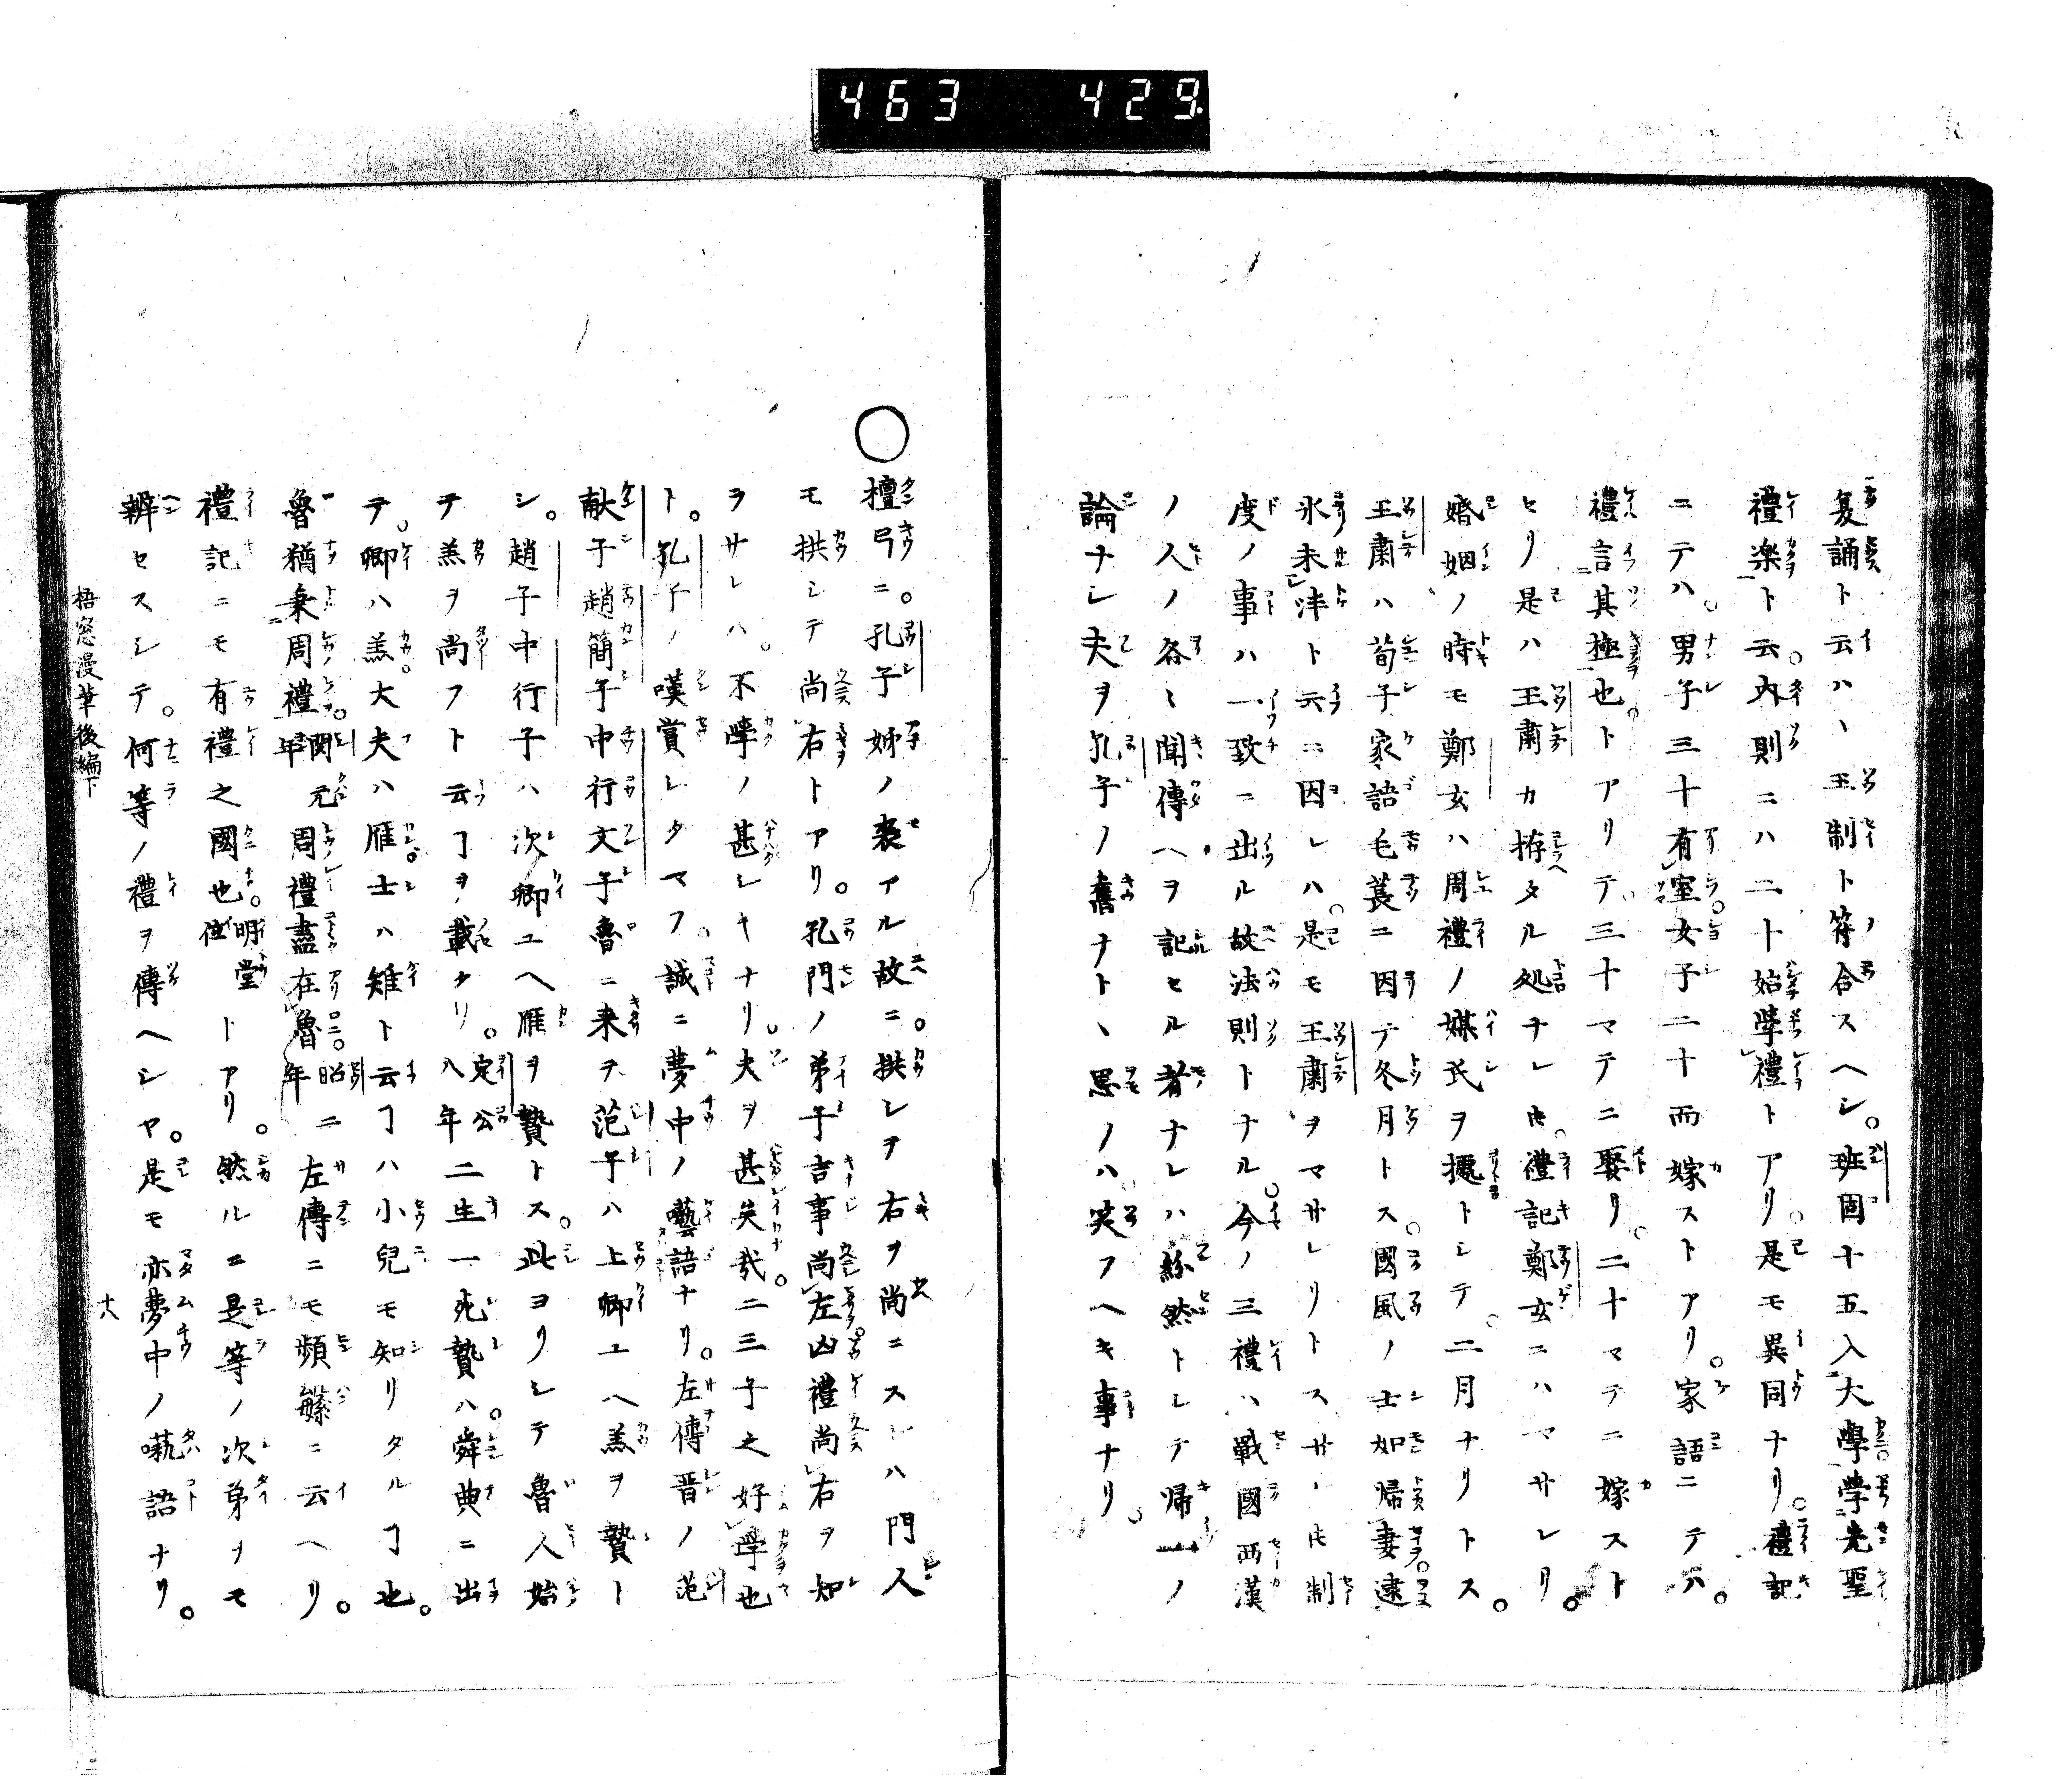 463 429
夏誦ト云ハ、王制ト符合スヘシ。班固十五入大學学先聖
禮楽ト云。内則ニハ二十始學禮トアリ。是モ異同ナリ。禮記
ニテハ。男子三十有室女子二十而嫁ストアリ。家語ニテハ。
禮言其極也。トアリテ三十マテニ娶リ。二十マテニ嫁スト
セリ是ハ王肅カ拵タル処ナレ𪜈。禮記鄭玄ニハマサレリ。
婚姻ノ時モ鄭玄ハ周禮ノ媒氏ヲ據トシテ。二月ナリトス。
王肅ハ荀子家語毛萇ニ因テ冬月トス。國風ノ士如帰妻逮
氷未泮ト云ニ因レハ。是モ王肅ヲマサレリトスサレ𪜈制
度ノ事ハ一致ニ出ル故法則トナル。今ノ三禮ハ戰國西漢
ノ人ノ各〻聞傳ヘヲ記セル者ナレハ紛然トシテ帰一ノ
論ナシ夫ヲ孔子ノ舊ナト、思ノハ笑フヘキ事ナリ。
○檀弓ニ。孔子姊ノ喪アル故ニ。拱シヲ右ヲ尚ニスレハ門人
モ拱シテ尚右トアリ。孔門ノ弟子吉事尚左凶禮尚右ヲ知
ヲサレハ。不學ノ甚シキナリ。夫ヲ甚矣哉。二三子之好學也
ト。孔子ノ嘆賞レタマフ。誠ニ夢中ノ囈語ナリ。左傳晋ノ范
献子趙簡子中行文子魯ニ来ヲ范子ハ上卿ユヘ羔ヲ贄ト
シ。趙子中行子ハ次卿ユヘ雁ヲ贄トス。此ヨリシテ魯人始
テ羔ヲ尚フト云ヿヲ載タリ。定公八年二生一死贄ハ。舜典ニ出
テ。卿ハ羔大夫ハ雁。士ハ雉ト云ヿハ小兒モ知リタルヿ也。
魯猶秉周禮。閔元年周禮盡在魯。昭二年左傳ニモ頻繁ニ云ヘリ。
禮記ニモ有禮之國也。明堂位トアリ。然ルニ是等ノ次第ヲモ
辨セスシテ。何等ノ禮ヲ傳ヘシヤ。是モ亦夢中ノ囈語ナリ。
梧窓漫筆後編下
十八